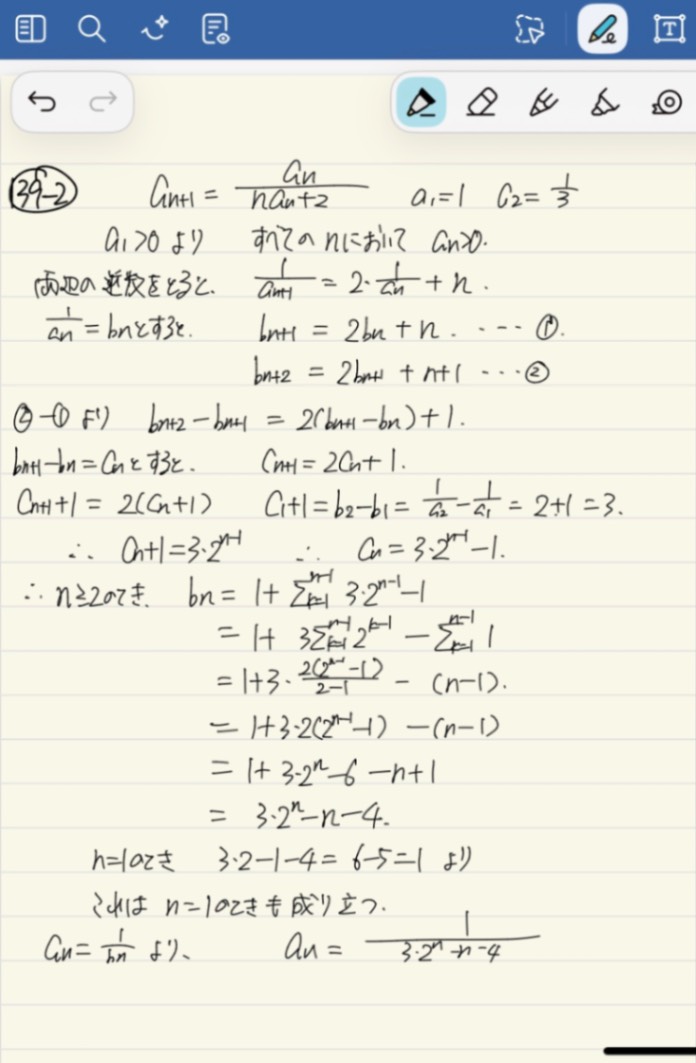 139-2 a_{n+1} = \frac{a_n}{na_n+2} a_1=1 a_2=\frac{1}{3}
a_1>0 より すべてのnにおいて a_n>0.
両辺の逆数をとると、 \frac{1}{a_{n+1}} = 2・\frac{1}{a_n} + n.
\frac{1}{a_n} = b_nとすると、 b_{n+1} = 2b_n + n. ‥‥ ①.
b_{n+2} = 2b_{n+1} + n+1 ‥‥②
②-①より b_{n+2} - b_{n+1} = 2(b_{n+1} - b_n) + 1.
b_{n+1} - b_n = C_nとすると、 C_{n+1} = 2C_n + 1.
C_{n+1} + 1 = 2(C_n+1) C_1+1 = b_2 - b_1 = \frac{1}{a_2} - \frac{1}{a_1} = 2+1 = 3.
∴ C_n+1 = 3・2^{n-1} ∴ C_n = 3・2^{n-1} - 1.
∴ n≧2のとき、 b_n = 1 + Σ_{k=1}^{n-1} 3・2^{n-1} - 1
= 1 + 3Σ_{k=1}^{n-1} 2^{k-1} - Σ_{k=1}^{n-1} 1
= 1+3・\frac{2(2^{n-1}-1)}{2-1} - (n-1).
= 1+3・2(2^{n-1}-1) - (n-1)
= 1+ 3・2^n - 6 - n+1
= 3・2^n - n - 4.
n=1のとき 3・2-1-4 = 6-5=1 より
これは n=1のときも成り立つ.
a_n = \frac{1}{b_n} より、 a_n = \frac{1}{3・2^n - n - 4}